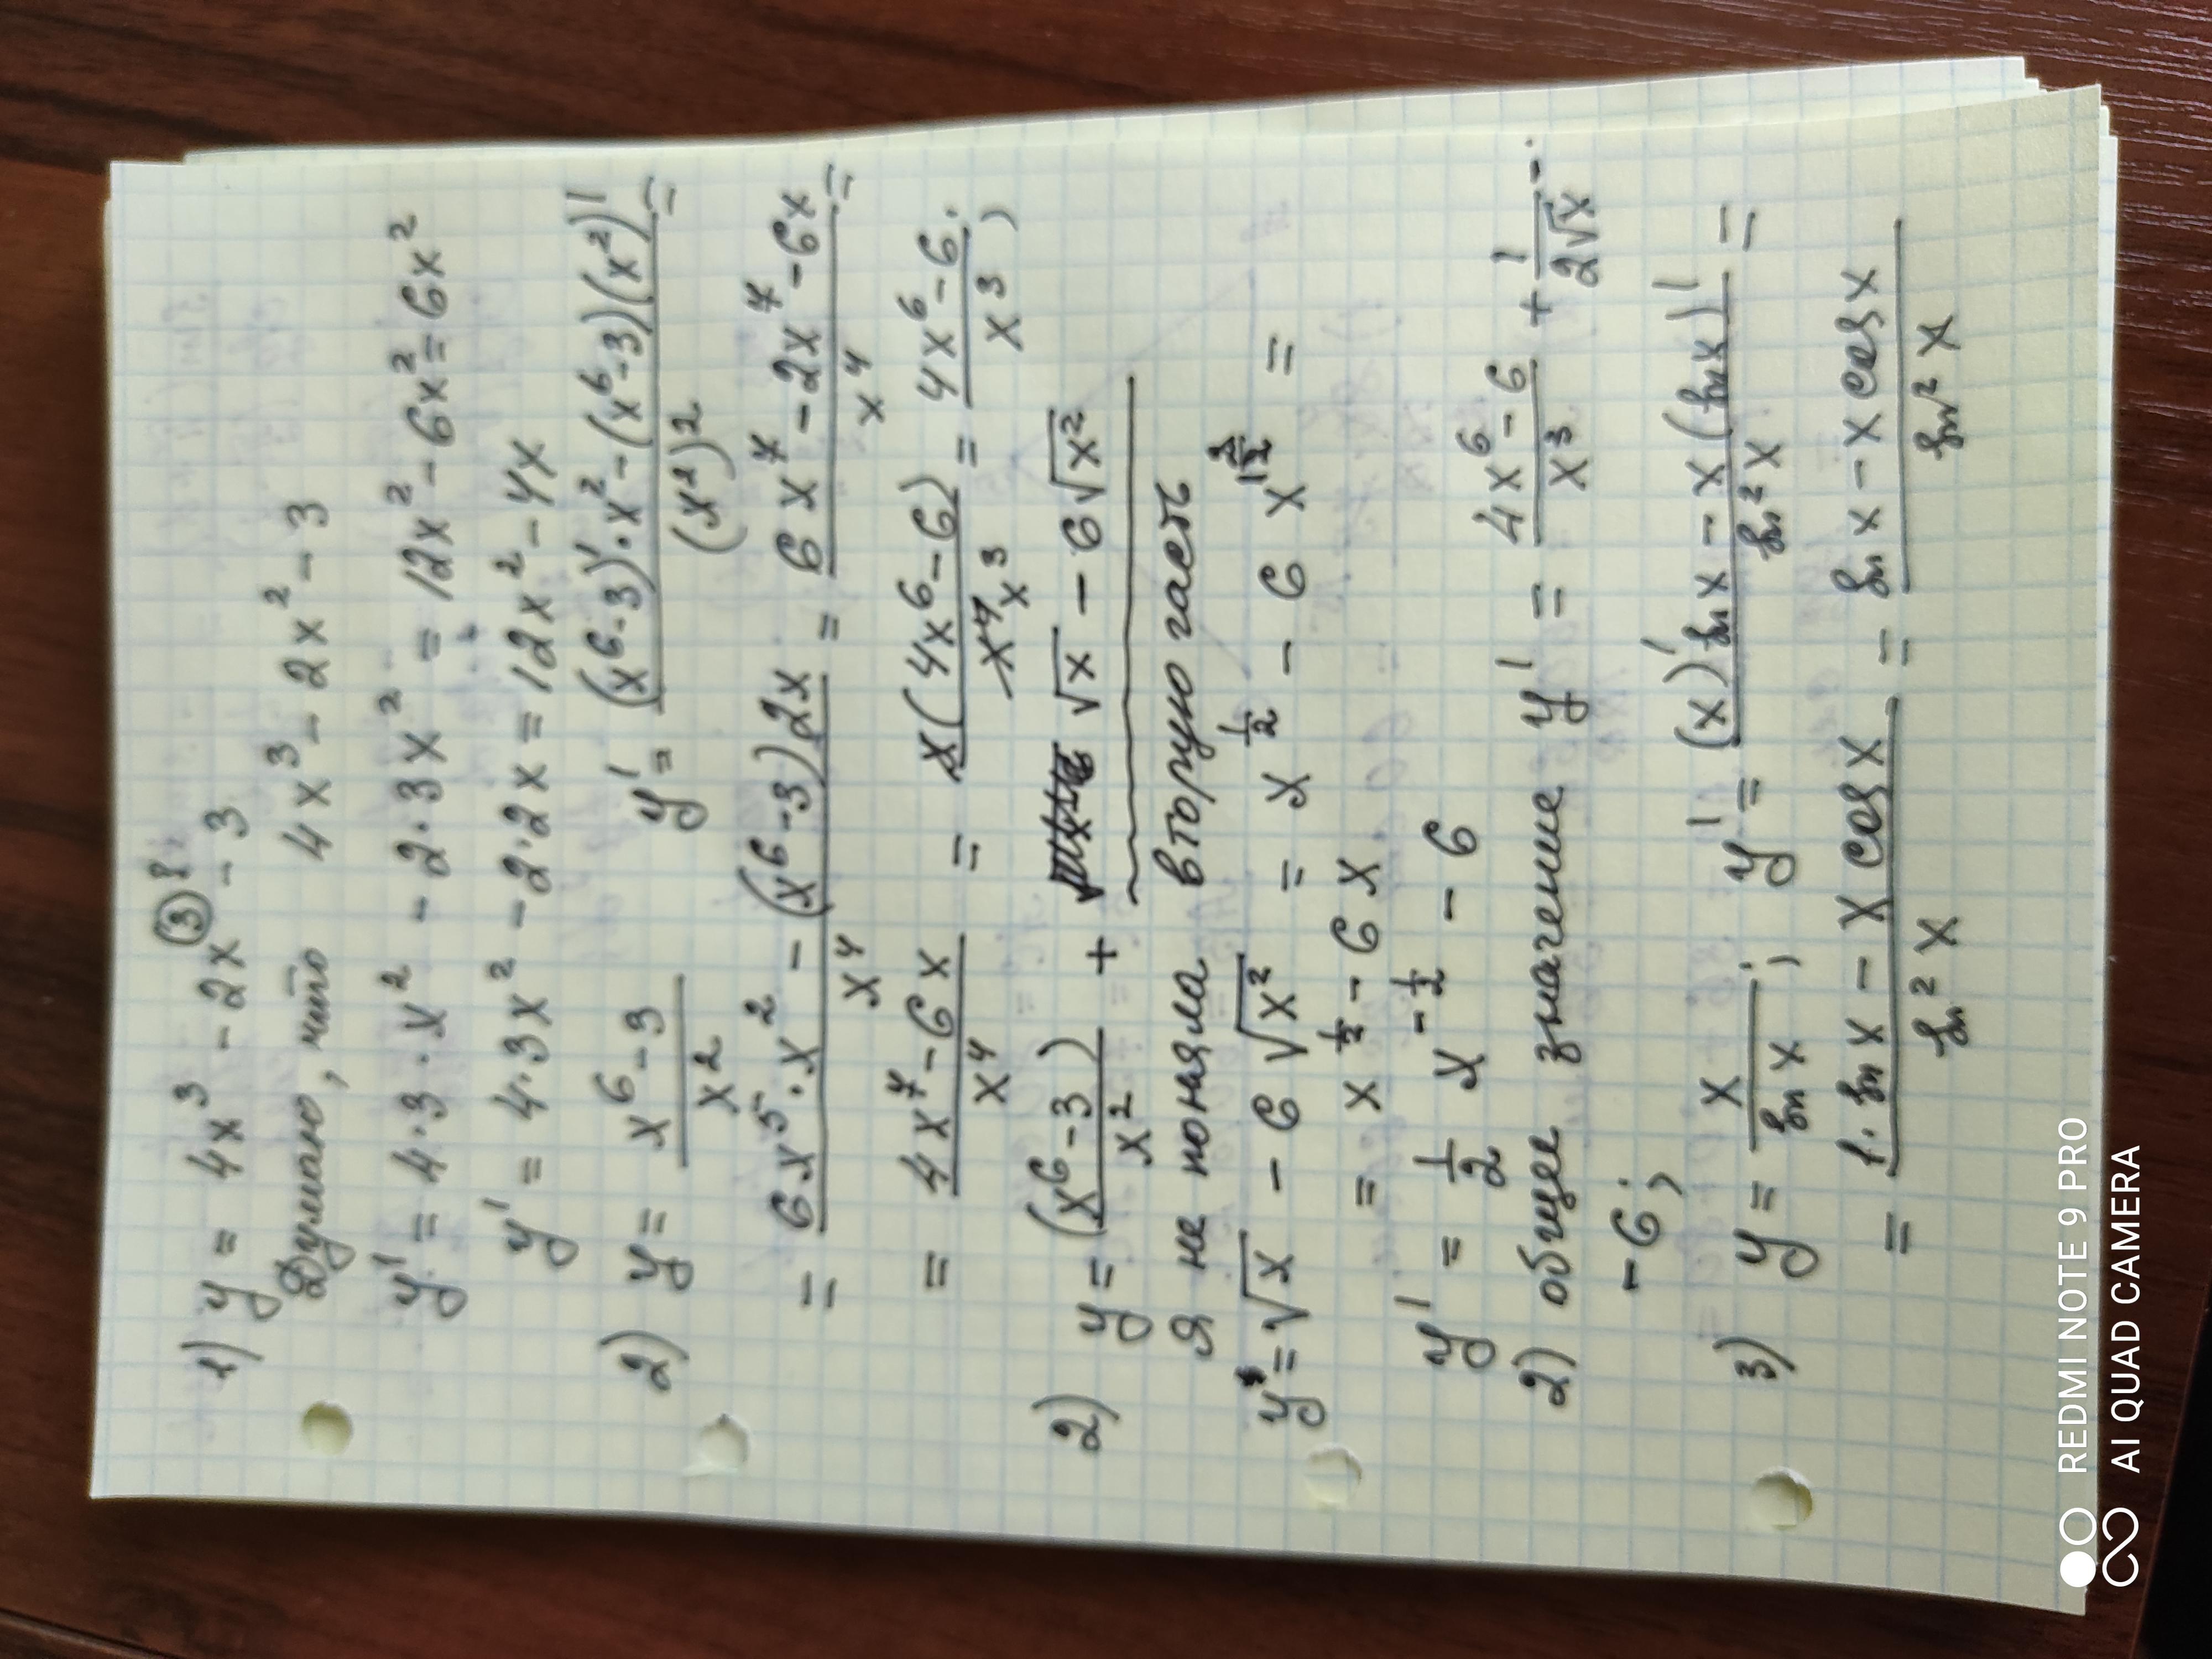 1) y = 4x³ - 2x^③? - 3
Думаю, что 4x³ - 2x² - 3
y' = 4·3·x² - 2·3x² = 12x² - 6x² = 6x²
y' = 4·3x² - 2·2x = 12x² - 4x
2) y = (x⁶-3)/x² y' = ((x⁶-3)'·x² - (x⁶-3)(x²)')/(x²)² =
= (6x⁵·x² - (x⁶-3)2x)/x⁴ = (6x⁷ - 2x⁷ - 6x)/x⁴ =
= (4x⁷ - 6x)/x⁴ = x(4x⁶-6)/x⁴ x³ = (4x⁶-6)/x³;
2) y = (x⁶-3)/x² + √x - 6√x²
Я не поняла вторую часть
y = √x - 6√x² = x^½ - 6x^(2/2) =
= x^½ - 6x
y' = ½ x^(-½) - 6
2) общее значение y' = (4x⁶-6)/x³ + 1/(2√x) -
-6;
3) y = x/sin x; y' = ((x)' sin x - x(sin x)')/sin²x =
= (1·sin x - x cos x)/sin²x = (sin x - x cos x)/sin²x
REDMI NOTE 9 PRO
AI QUAD CAMERA